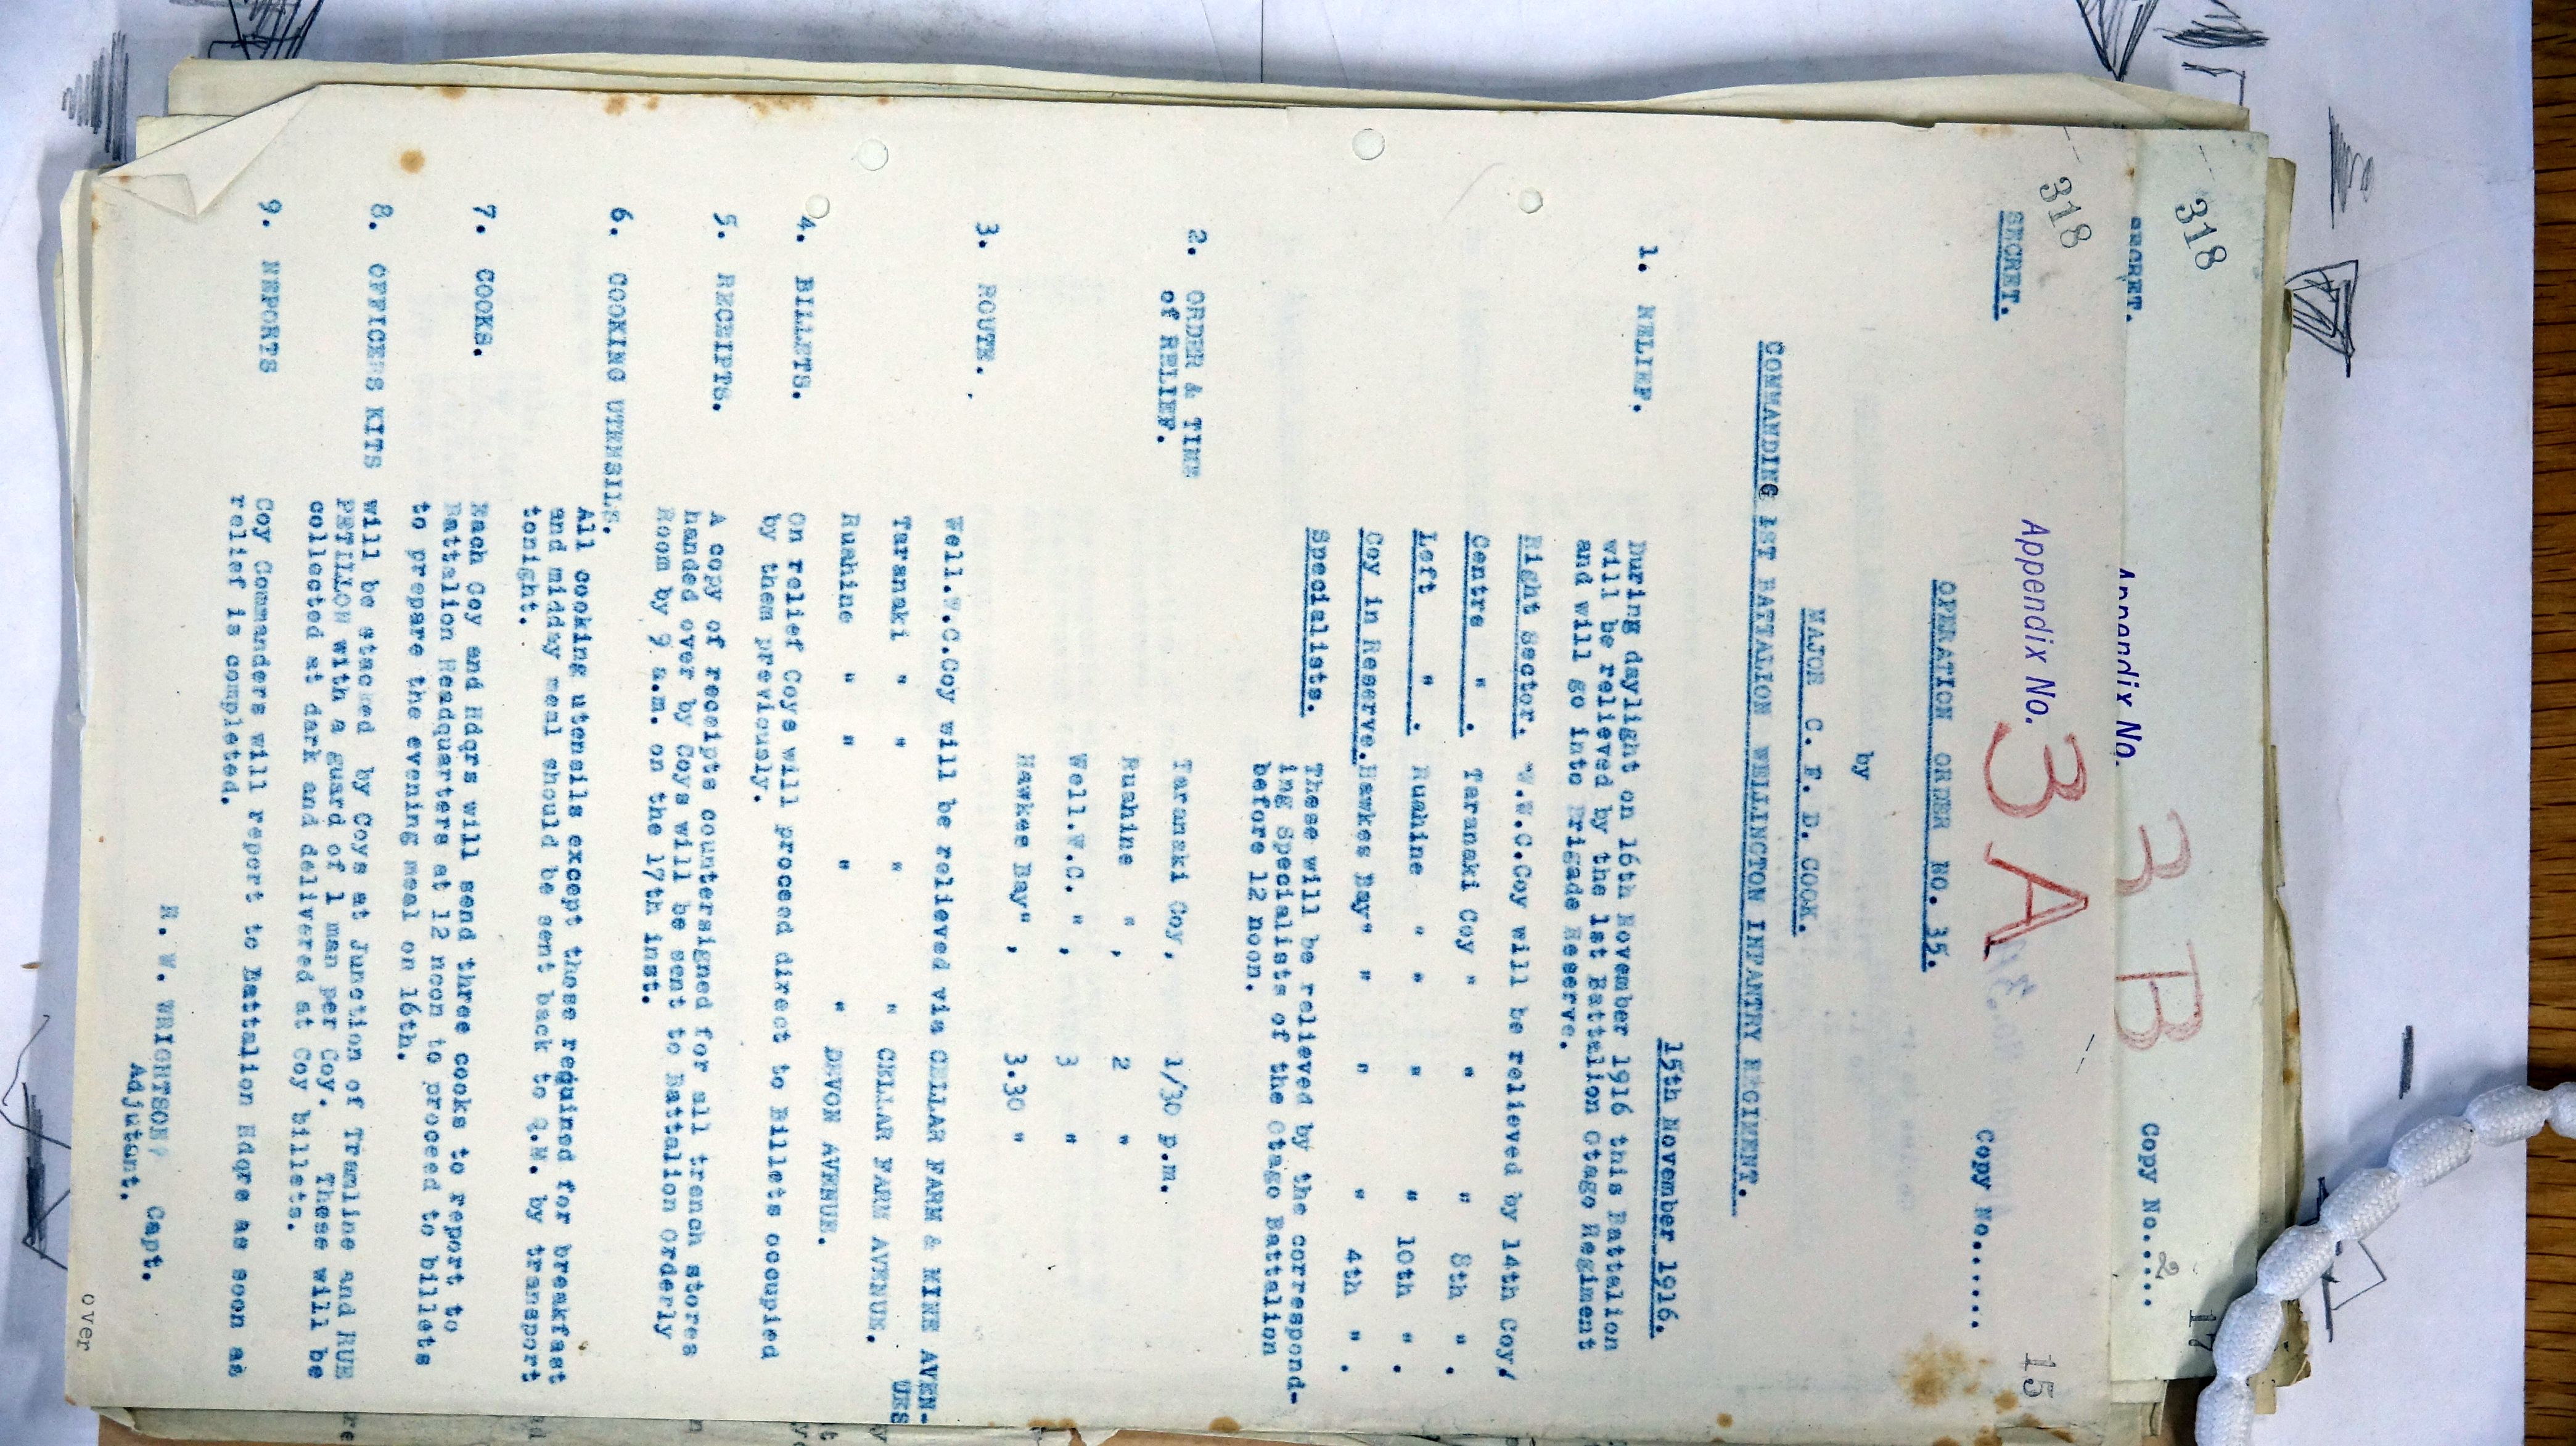 318
SECRET.
Appendix No.
3 B
Copy No.....
2
17
318
SECRET.
Appendix No.
3 A
Copy No......
15
OPERATION ORDER NO. 35.
by
MAJOR C. F. D. COOK.
COMMANDING 1ST BATTALION WELLINGTON INFANTRY REGIMENT.
15th November 1916.
1. RELIEF.
During daylight on 16th November 1916 this Battalion
will be relieved by the 1st Battalion Otago Regiment
and will go into Brigade Reserve.
Right Sector. W.W.C.Coy will be relieved by 14th Coy,
Centre " . Taranaki Coy " " " 8th " .
Left " . Ruahine " " " " 10th " .
Coy in Reserve.Hawkes Bay" " " " 4th " .
Specialists.
These will be relieved by the correspond-
ing Specialists of the Otago Battalion
before 12 noon.
2. ORDER & TIME
of RELIEF.
Taranaki Coy, 1/30 p.m.
Ruahine " , 2 "
Well.W.C. " , 3 "
Hawkes Bay" , 3.30 "
3. ROUTE.
Well.W.C.Coy will be relieved via CELLAR FARM & MINE AVEN-
UES
Taranaki " " " " CELLAR FARM AVENUE.
Ruahine " " " " DEVON AVENUE.
4. BILLETS.
On relief Coys will proceed direct to Billets occupied
by them previously.
5. RECEIPTS.
A copy of receipts countersigned for all trench stores
handed over by Coys will be sent to Battalion Orderly
Room by 9 a.m. on the 17th inst.
6. COOKING UTENSILS.
All cooking utensils except those required for breakfast
and midday meal should be sent back to Q.M. by transport
tonight.
7. COOKS.
Each Coy and Hdqrs will send three cooks to report to
Battalion Headquarters at 12 noon to proceed to billets
to prepare the evening meal on 16th.
8. OFFICES KITS
will be stacked by Coys at Junction of Tramline and RUE
PETILLON with a guard of 1 man per Coy. These will be
collected at dark and delivered at Coy billets.
9. REPORTS
Coy Commanders will report to Battalion Hdqrs as soon as
relief is completed.
H. W. WRIGHTSON Capt.
Adjutant.
over